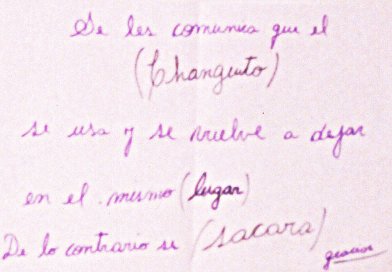 Se les comunica que el
(Changuito)
se usa y se vuelve a dejar
en el mismo (lugar)
De lo contrario se (sacara)
gracias